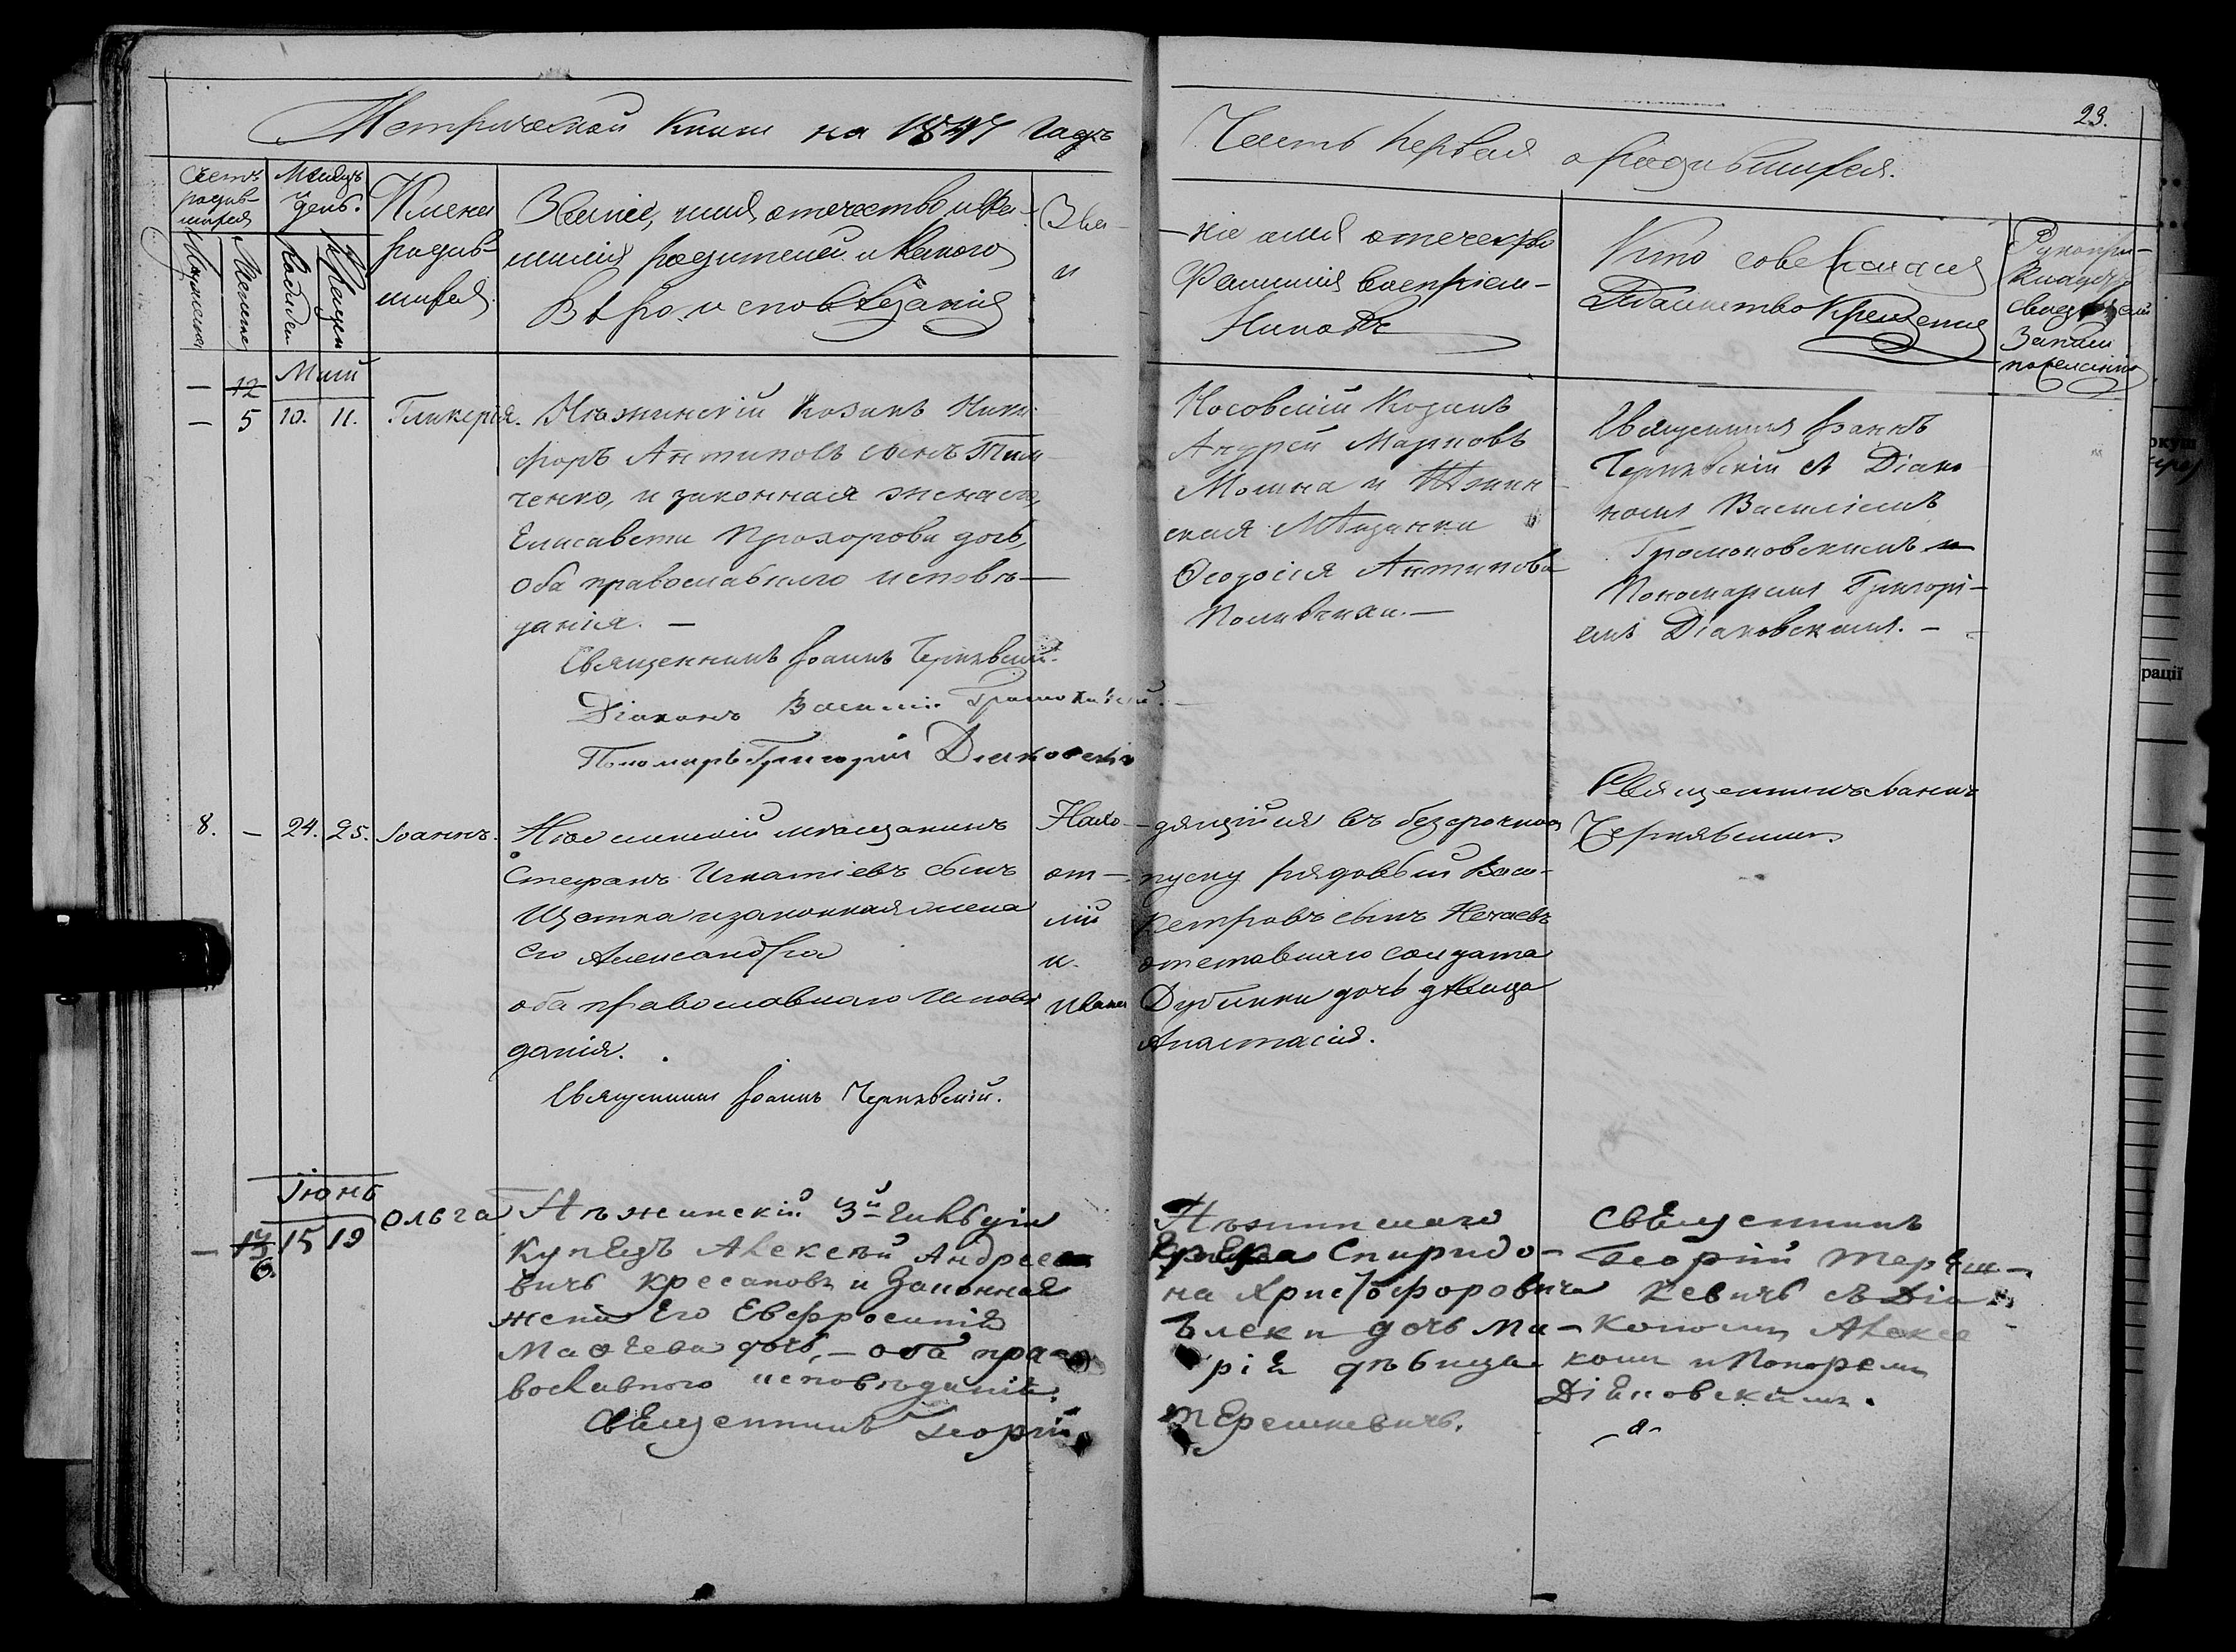 Метрической Книги на 1847 годъ
Часть первая о родившихся.
23.
Счетъ родив-
шихся
Мѣсяцъ
и
день.
Имена
родив-
шихся.
Званіе, имя, отечество и фа-
милія родителей и какого
вѣроисповѣданія
Зва-
и
-ніе имя отечество
фамилія воспріем-
никовъ
Кто совершалъ
таинство Крещенія
Рукопри-
кладство
свидѣтелей
Записи
по желанію
Мужеска
Женска
Рожденія
Крещенія
Май
— 12
— 5 10. 11. Гликерія.
Нѣжинскій козакъ Ники-
форъ Антиповъ сынъ Тим-
ченко, и законная жена его,
Елисавета Прохорова дочь,
оба православнаго исповѣ-
данія. —
Священникъ Іоаннъ Чернявскій.
Діаконъ Василій
Пономарь Григорій Діаковскій
Носовскій Козакъ
Андрей Марковъ
и Нѣжин-
ская Мѣщанка
Ѳеодосія Антипова
Священникъ Іоаннъ
Чернявскій съ Діако-
номъ Василіемъ
и
Пономаремъ Григорі-
емъ Діаковскимъ. —
8. — 24. 25. Іоаннъ.
Нѣжинскій мѣщанинъ
Стефанъ Игнатіевъ сынъ
Щетка и законная жена
его Александра
оба православнаго исповѣ
данія.
Священникъ Іоаннъ Чернявскій.
Нахо-дящійся въ безсрочномъ
от-пуску рядовый Васи-
лій Петровъ сынъ Нечаевъ
и. отставнаго солдата
Ивана Дубинки дочь дѣвица
Анастасія.
Священникъ Іоаннъ
Чернявскій
Іюнь
— 6. 15 19 Ольга
Нѣжинскій 3й гильдіи
купецъ Алексѣй Андрее
вичъ Кресановъ и законная
жена Его Евфросинія
Матѳеева дочь, — оба пра-
вославнаго исповѣданія.
Священникъ Георгій
Терешкевичъ.
Нѣжинскаго
Грека Спиридо-
на Христофоровича
дочь Ма-
рія дѣвица
Священникъ
Георгій Тереш-
кевичъ съ Діа-
кономъ Алексее
комъ и Понорем
Діаковскимъ.